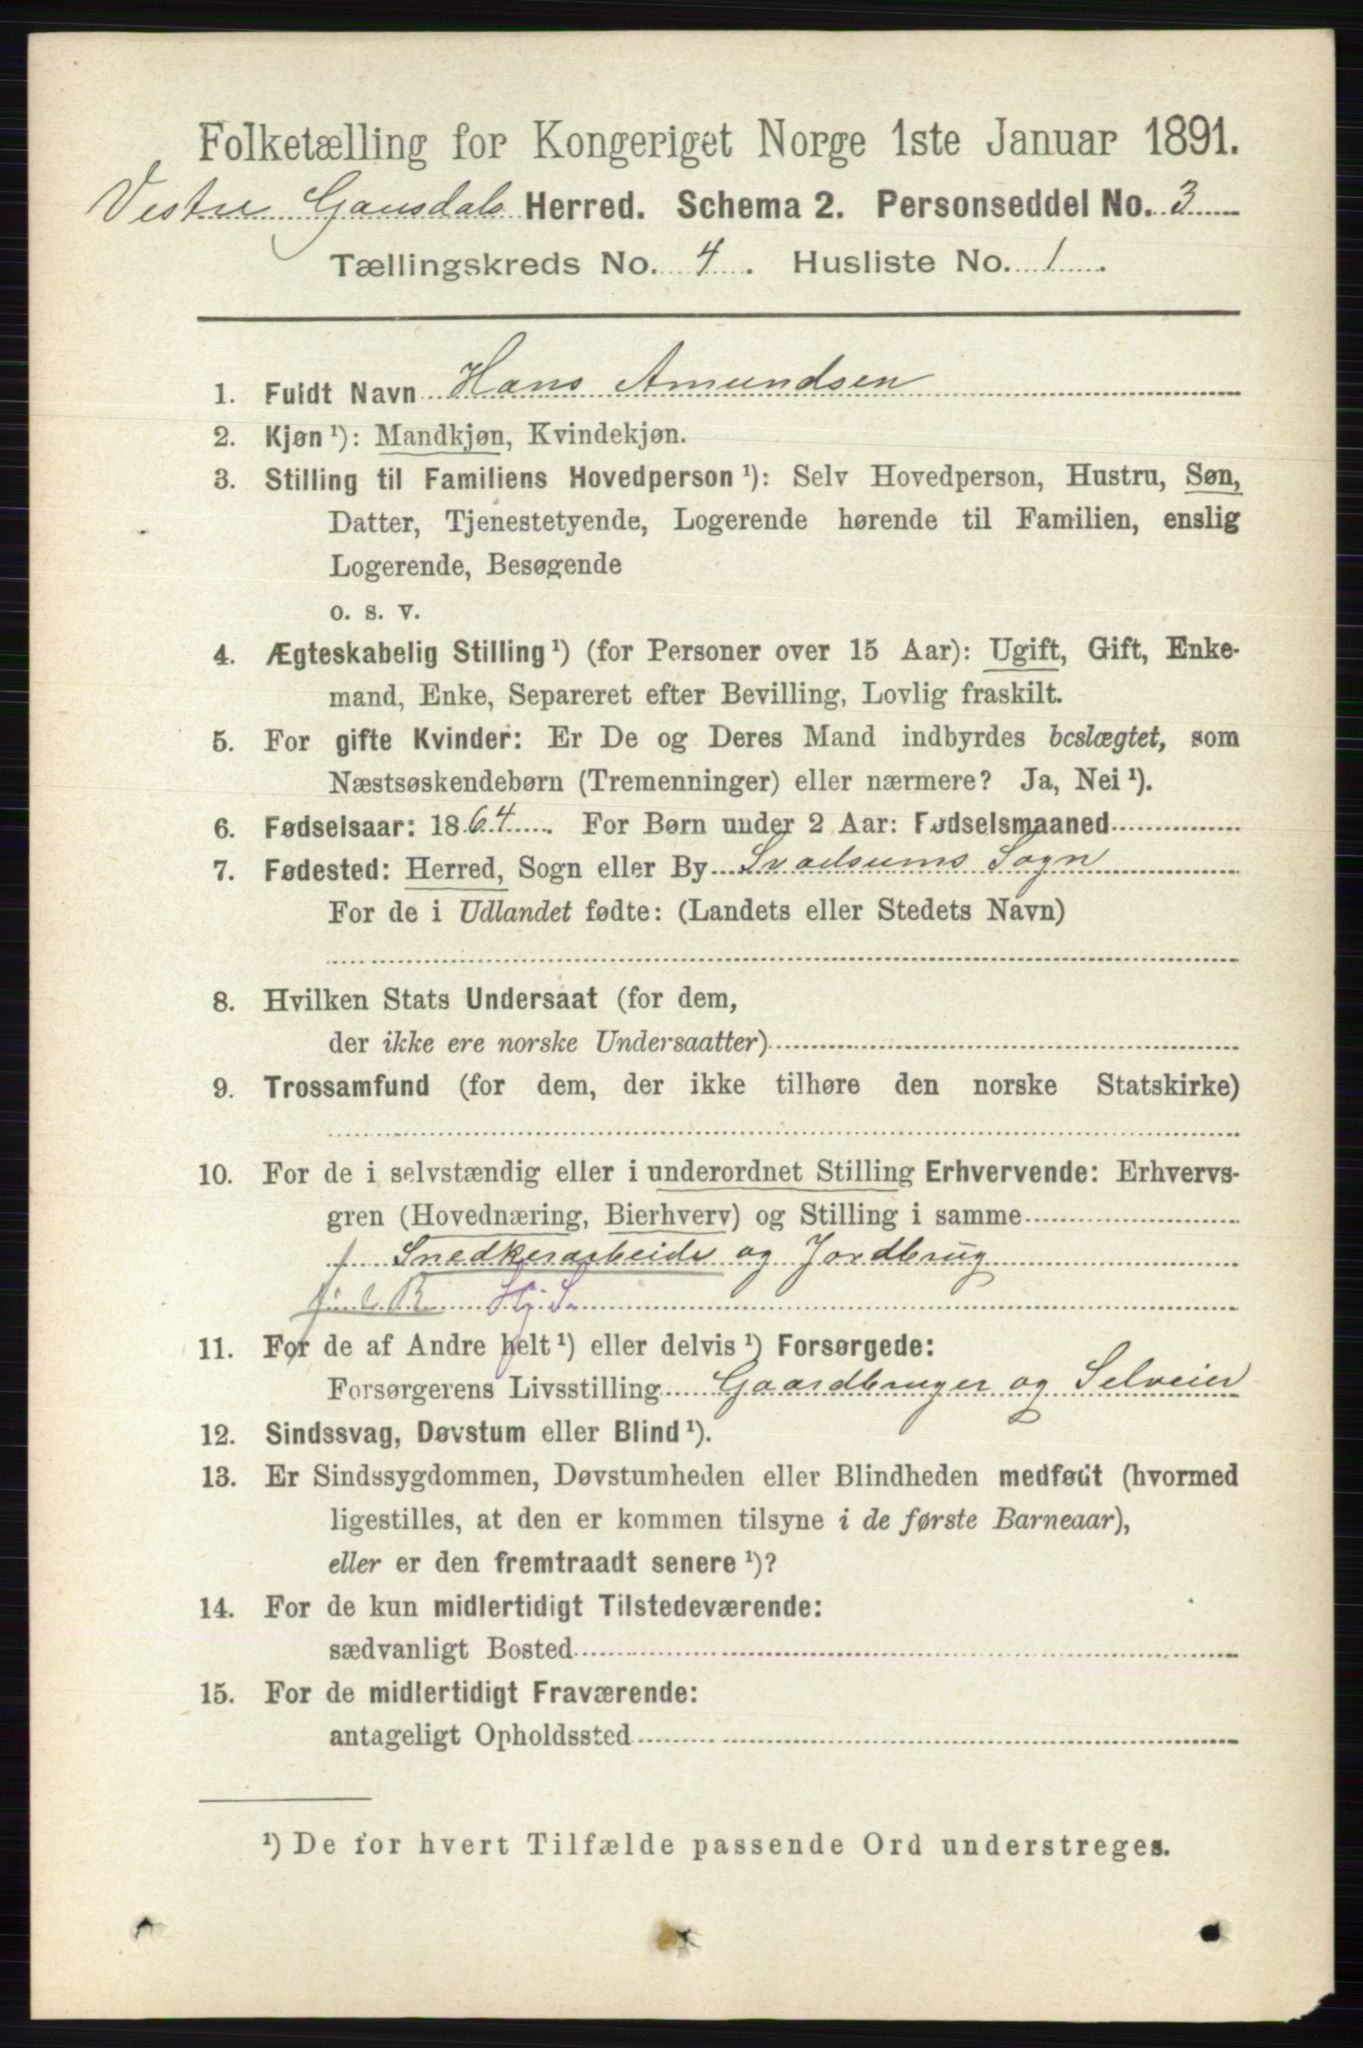 Folketælling for Kongeriget Norge 1ste Januar 1891.
Vestre Gausdals Herred. Schema 2. Personseddel No. 3
Tællingskreds No. 4. Husliste No. 1.
1. Fuldt Navn Hans Amundsen
2. Kjøn ¹): Mandkjøn, Kvindekjøn.
3. Stilling til Familiens Hovedperson ¹): Selv Hovedperson, Hustru, Søn,
Datter, Tjenestetyende, Logerende hørende til Familien, enslig
Logerende, Besøgende
o. s. v.
4. Ægteskabelig Stilling ¹) (for Personer over 15 Aar): Ugift, Gift, Enke-
mand, Enke, Separeret efter Bevilling, Lovlig fraskilt.
5. For gifte Kvinder: Er De og Deres Mand indbyrdes beslægtet, som
Næstsøskendebørn (Tremenninger) eller nærmere? Ja, Nei ¹).
6. Fødselsaar: 1864. For Børn under 2 Aar: Fødselsmaaned
7. Fødested: Herred, Sogn eller By Svadsums Sogn
For de i Udlandet fødte: (Landets eller Stedets Navn)
8. Hvilken Stats Undersaat (for dem,
der ikke ere norske Undersaatter)
9. Trossamfund (for dem, der ikke tilhøre den norske Statskirke)
10. For de i selvstændig eller i underordnet Stilling Erhvervende: Erhvervs-
gren (Hovednæring, Bierhverv) og Stilling i samme
Snedkerarbeide og Jordbrug
11. For de af Andre helt ¹) eller delvis ¹) Forsørgede:
Forsørgerens Livsstilling Gaardbruger og Selveier
12. Sindssvag, Døvstum eller Blind ¹).
13. Er Sindssygdommen, Døvstumheden eller Blindheden medfødt (hvormed
ligestilles, at den er kommen tilsyne i de første Barneaar),
eller er den fremtraadt senere ¹)?
14. For de kun midlertidigt Tilstedeværende:
sædvanligt Bosted
15. For de midlertidigt Fraværende:
antageligt Opholdssted
¹) De for hvert Tilfælde passende Ord understreges.